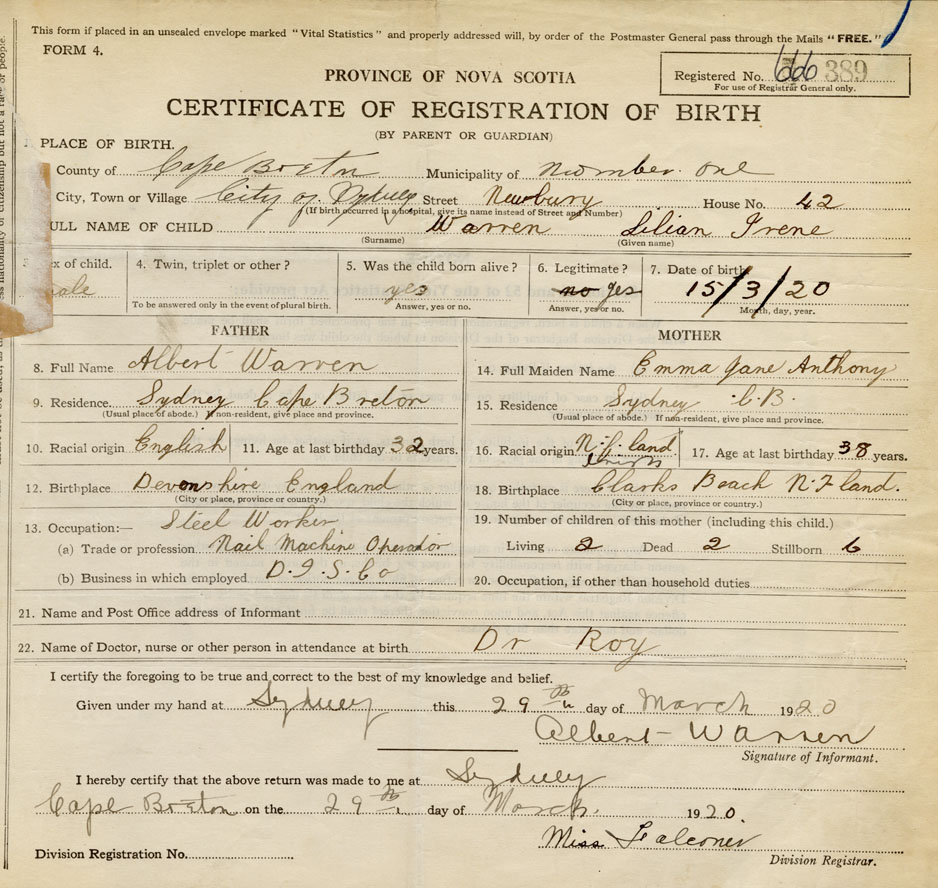 This form if placed in an unsealed envelope marked "Vital Statistics" and properly addressed will, by order of the Postmaster General pass through the Mails "FREE."
FORM 4.
PROVINCE OF NOVA SCOTIA
Registered No. 666 389
For use of Registrar General only.
CERTIFICATE OF REGISTRATION OF BIRTH
(BY PARENT OR GUARDIAN)
PLACE OF BIRTH.
County of Cape Breton Municipality of Number one
City, Town or Village City of Sydney Street Newbury House No. 42
(If birth occurred in a hospital, give its name instead of Street and Number)
ULL NAME OF CHILD Warren Lilian Irene
(Surname) (Given name)
x of child. 4. Twin, triplet or other? 5. Was the child born alive? 6. Legitimate? 7. Date of birth
male yes no yes 15/3/20
To be answered only in the event of plural birth. Answer, yes or no. Answer, yes or no. Month, day, year.
FATHER MOTHER
8. Full Name Albert Warren 14. Full Maiden Name Emma Jane Anthony
9. Residence. Sydney Cape Breton 15. Residence Sydney C.B.
(Usual place of abode.) If non-resident, give place and province. (Usual place of abode.) If non-resident, give place and province.
10. Racial origin English 11. Age at last birthday 32 years. 16. Racial origin N.f.land 17. Age at last birthday 38 years.
12. Birthplace Devonshire England 18. Birthplace Clarks Beach N.F land.
(City or place, province or country.) (City or place, province or country.)
13. Occupation:— Steel Worker 19. Number of children of this mother (including this child.)
(a) Trade or profession Nail Machine Operador Living 2 Dead 2 Stillborn 6
(b) Business in which employed D.I.S.Co 20. Occupation, if other than household duties
21. Name and Post Office address of Informant
22. Name of Doctor, nurse or other person in attendance at birth Dr Roy
I certify the foregoing to be true and correct to the best of my knowledge and belief.
Given under my hand at Sydney this 29th day of March 1920
Albert Warren
Signature of Informant.
I hereby certify that the above return was made to me at Sydney
Cape Breton on the 29th day of March. 1920.
Miss Falconer
Division Registration No. Division Registrar.